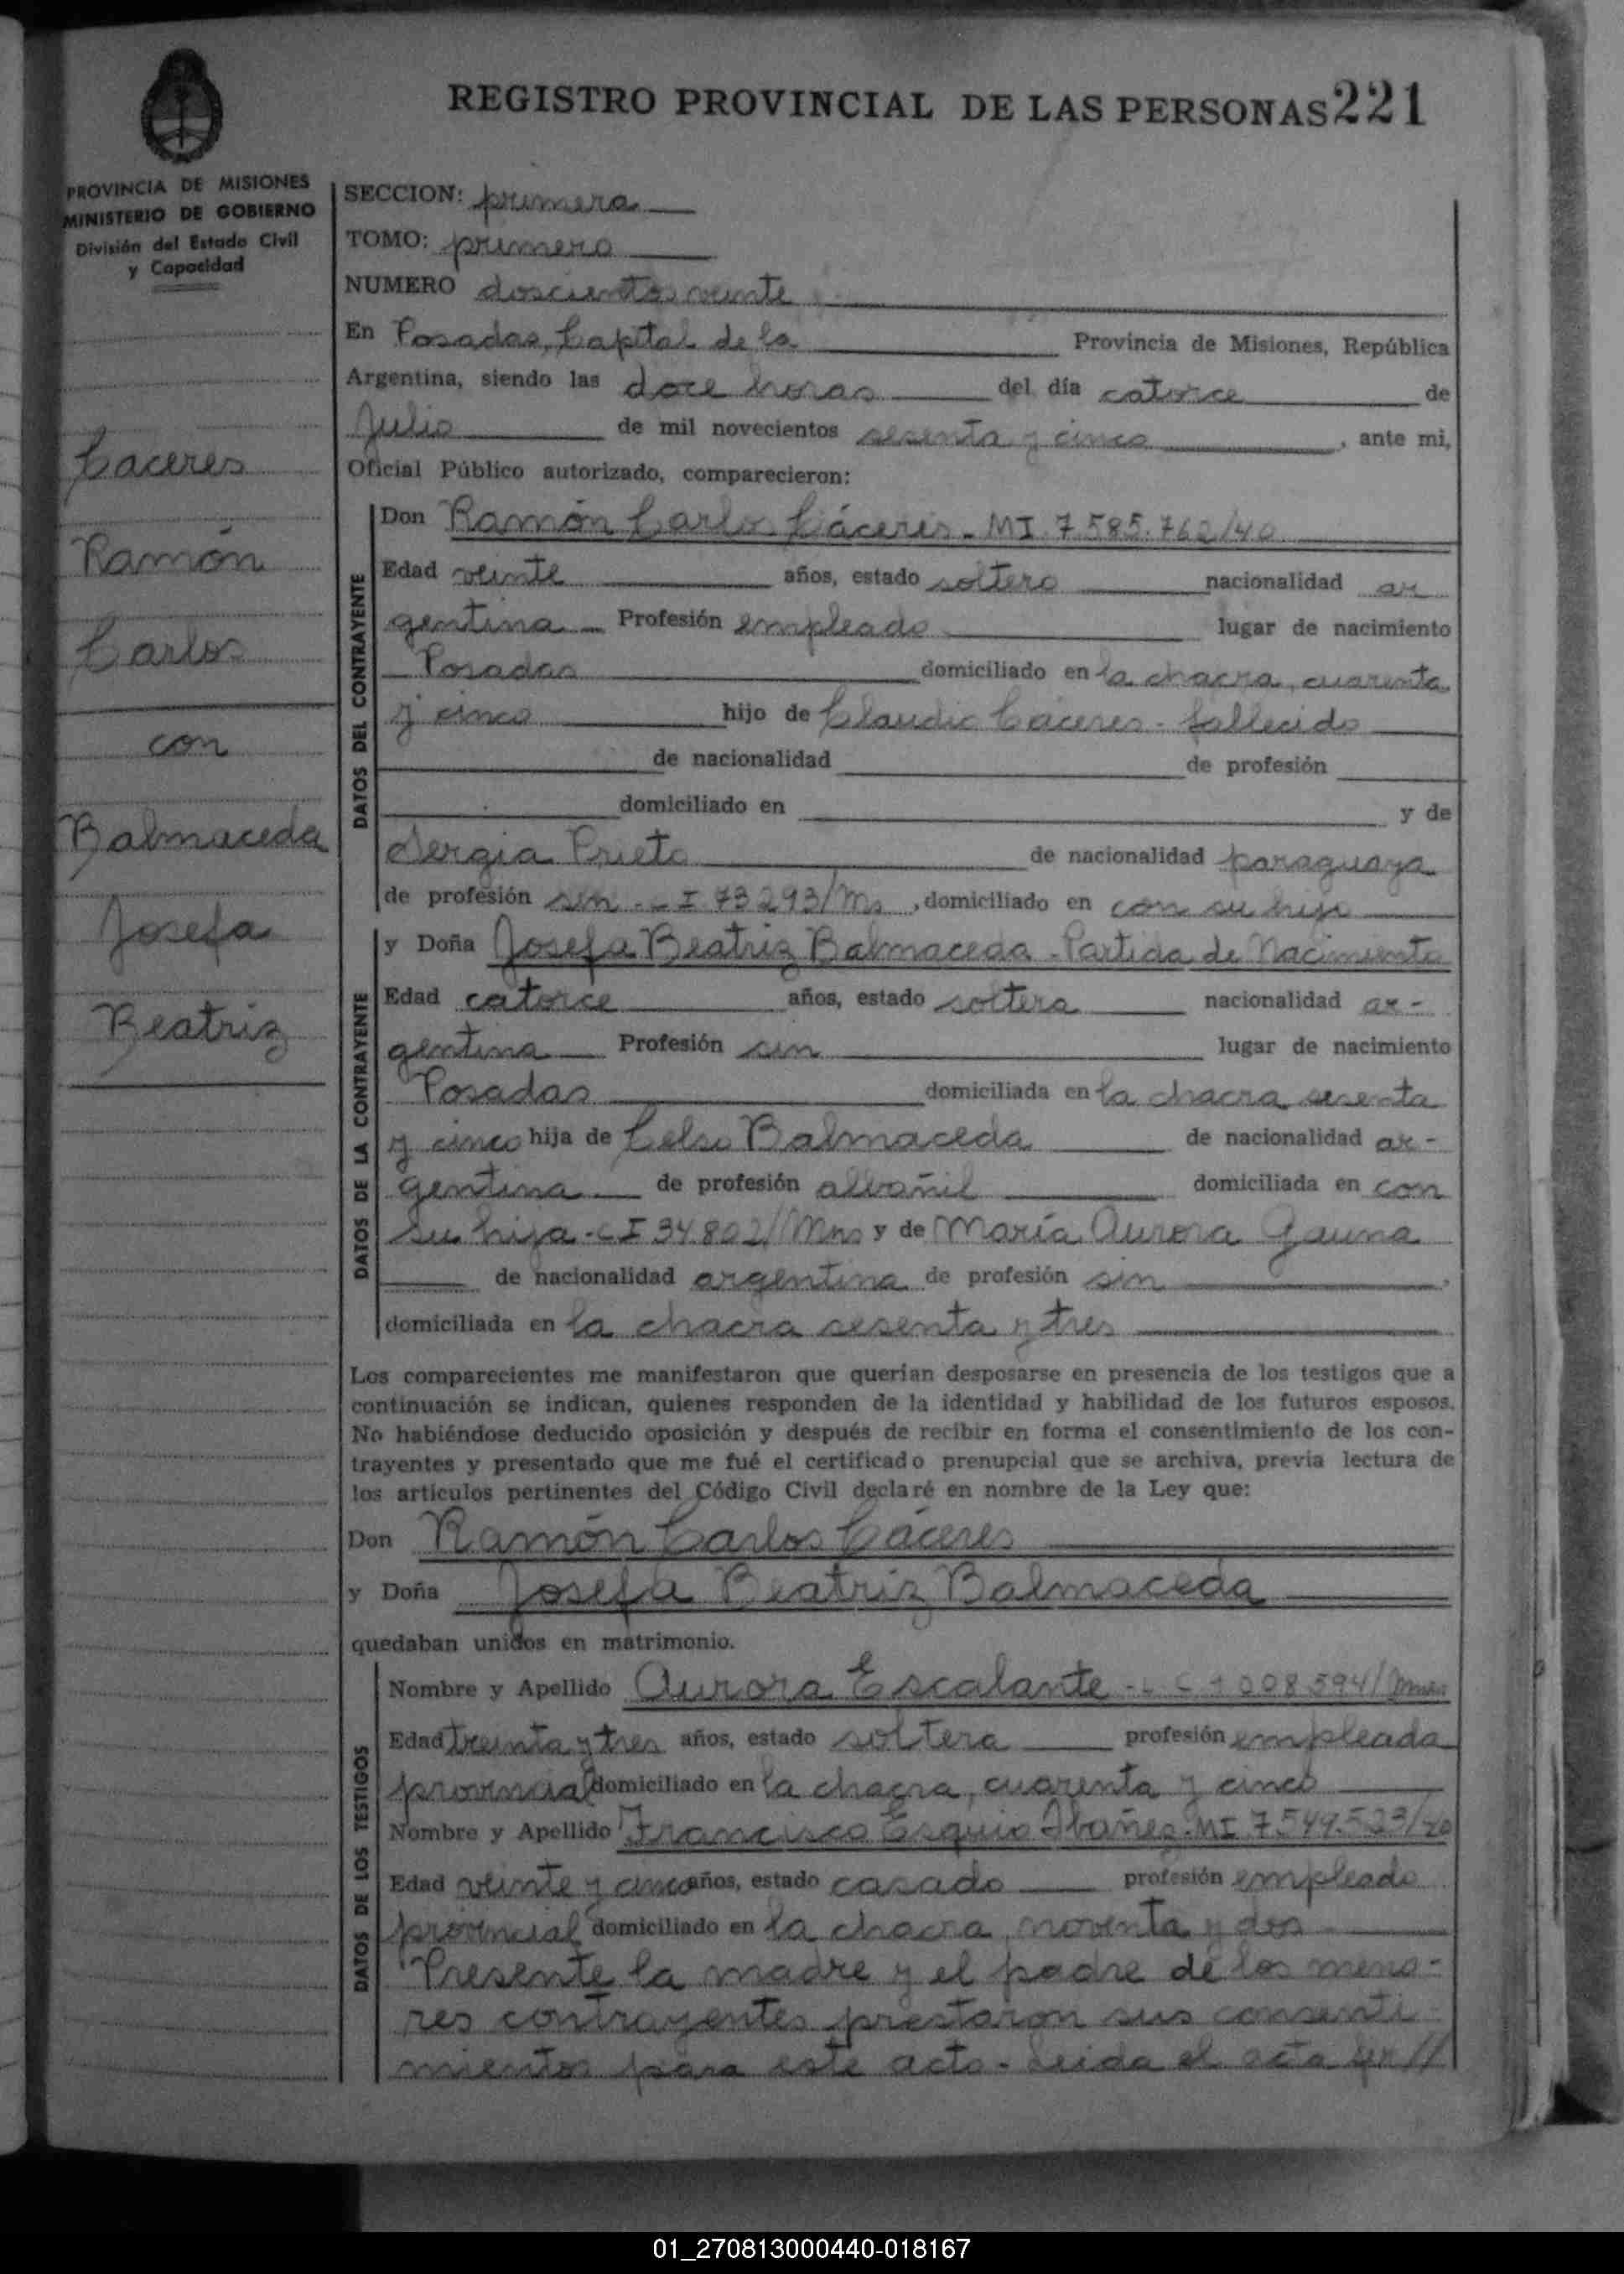 REGISTRO PROVINCIAL DE LAS PERSONAS 221
PROVINCIA DE MISIONES
MINISTERIO DE GOBIERNO
División del Estado Civil
y Capacidad
Caceres
Ramón
Carlos
con
Balmaceda
Josefa
Beatriz
SECCION: primera
TOMO: primero
NUMERO doscientos veinte
En Posadas, Capital de la Provincia de Misiones, República
Argentina, siendo las doce horas del día catorce de
Julio de mil novecientos sesenta y cinco, ante mi,
Oficial Público autorizado, comparecieron:
DATOS DEL CONTRAYENTE
Don Ramón Carlos Cáceres - MI 7.585.762/40
Edad veinte años, estado soltero nacionalidad ar
gentina Profesión empleado lugar de nacimiento
Posadas domiciliado en la chacra, cuarenta
y cinco hijo de Claudio Cáceres - fallecido
de nacionalidad de profesión
domiciliado en y de
Sergia Prieto de nacionalidad paraguaya
de profesión sin - C I 73293/Ms, domiciliado en con su hijo
DATOS DE LA CONTRAYENTE
y Doña Josefa Beatriz Balmaceda - Partida de Nacimiento
Edad catorce años, estado soltera nacionalidad ar-
gentina Profesión sin lugar de nacimiento
Posadas domiciliada en la chacra sesenta
y cinco hija de Celso Balmaceda de nacionalidad ar-
gentina de profesión albañil domiciliada en con
su hija - C I 34.802/Mns y de María Aurora Gauna
de nacionalidad argentina de profesión sin,
domiciliada en la chacra sesenta y tres
Los comparecientes me manifestaron que querían desposarse en presencia de los testigos que a
continuación se indican, quienes responden de la identidad y habilidad de los futuros esposos.
No habiéndose deducido oposición y después de recibir en forma el consentimiento de los con-
trayentes y presentado que me fué el certificado prenupcial que se archiva, previa lectura de
los artículos pertinentes del Código Civil declaré en nombre de la Ley que:
Don Ramón Carlos Cáceres
y Doña Josefa Beatriz Balmaceda
quedaban unidos en matrimonio.
DATOS DE LOS TESTIGOS
Nombre y Apellido Aurora Escalante - L C 1008594/Mnes
Edad treinta y tres años, estado soltera profesión empleada
provincial domiciliado en la chacra, cuarenta y cinco
Nombre y Apellido Francisco Esquio Ibañez - MI 7.549.523/40
Edad veinte y cinco años, estado casado profesión empleado
provincial domiciliado en la chacra noventa y dos
Presente la madre y el padre de los meno-
res contrayentes prestaron sus consenti-
mientos para este acto - Leida el acta fir//
01_270813000440-018167